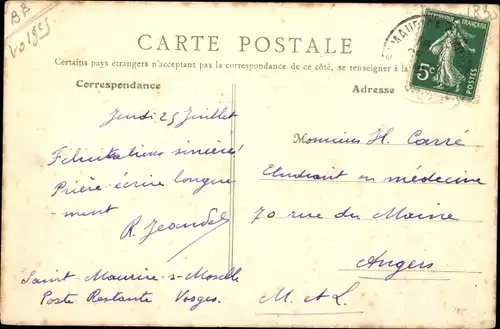 BB
Vosges
CARTE POSTALE
Certains pays étrangers n'acceptant pas la correspondance de ce côté, se renseigner à la
Correspondance
Adresse
RÉPUBLIQUE FRANÇAISE
5c
POSTES
Jeudi 25 Juillet
Félicitations sincères!
Prière écrire longue-
ment
R. Jeandel
Saint-Maurice-s-Moselle
Poste Restante Vosges.
Monsieur H. Carré
Etudiant en médecine
70 rue du Maine
Angers
M. et L.